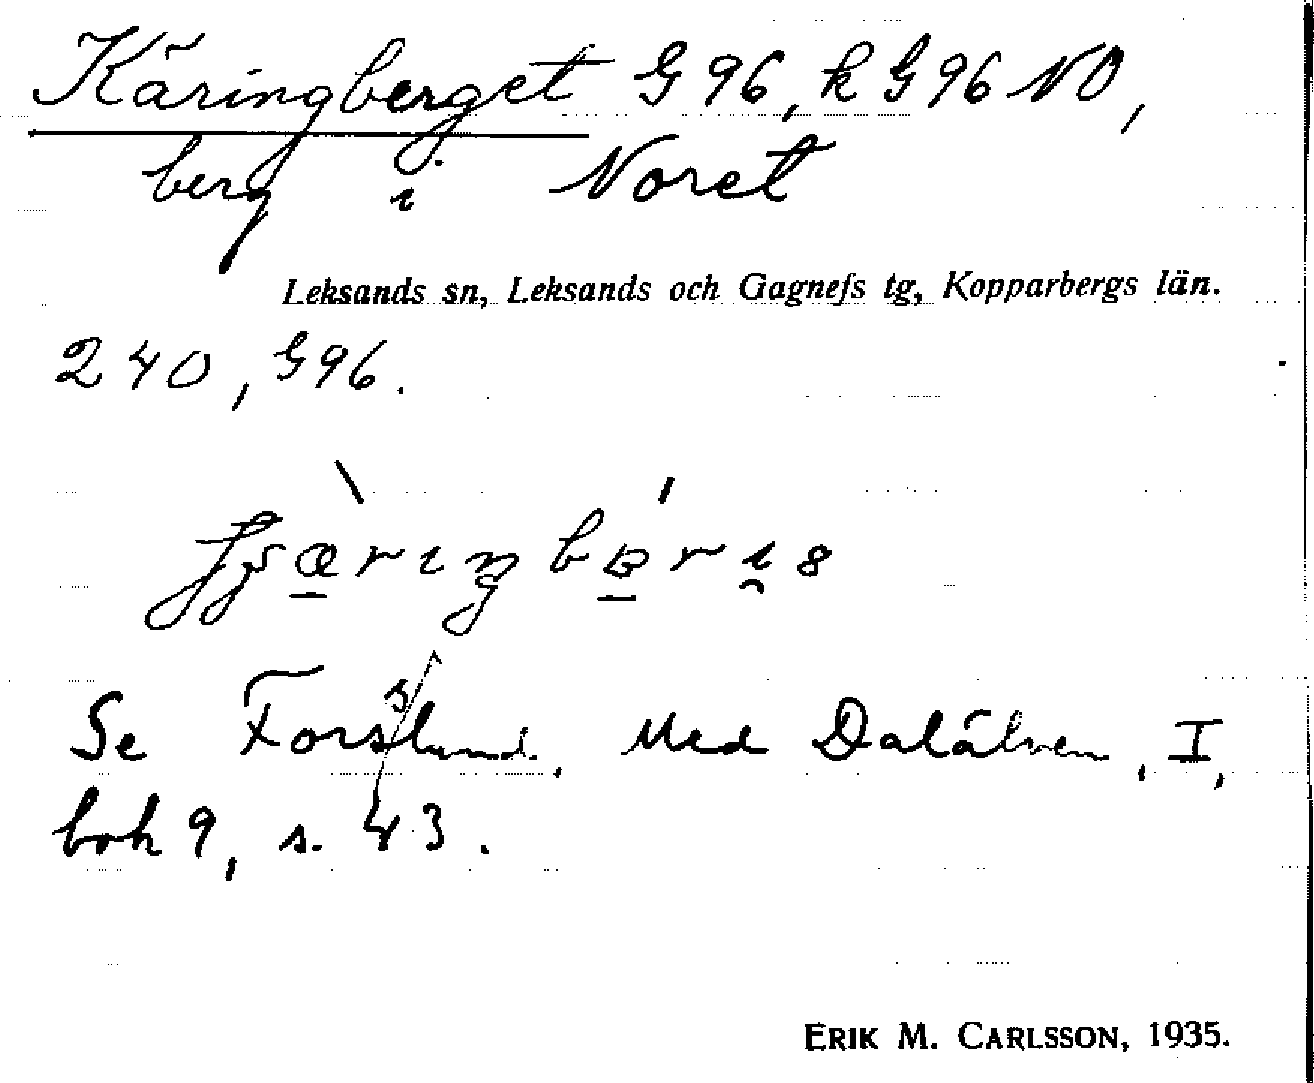 Käringberget G 96, k G 96 NO,
berg i Noret
Leksands sn, Leksands och Gagnefs tg, Kopparbergs län.
240, G96.
Se Forsslund, Med Dalälven, I,
bok 9, s. 43.
ERIK M. CARLSSON, 1935.